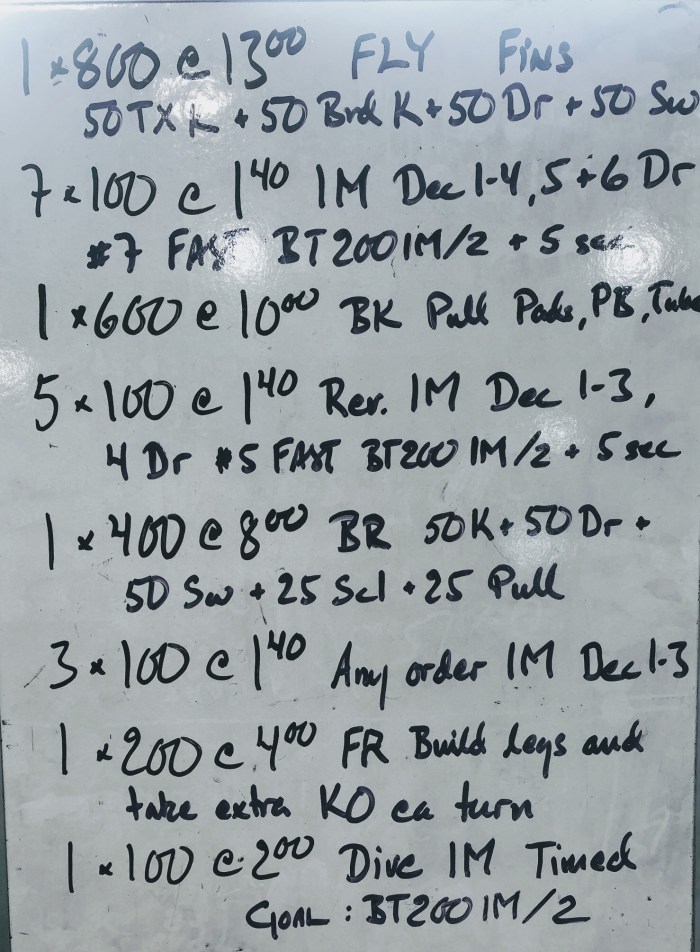 1 x 800 @ 13⁰⁰ FLY Fins
50 TX K + 50 Brd K + 50 Dr + 50 Sw
7 x 100 @ 1⁴⁰ IM Dec 1-4, 5+6 Dr
#7 FAST BT 200 IM/2 + 5 sec
1 x 600 @ 10⁰⁰ BK Pull Pads, PB,
5 x 100 @ 1⁴⁰ Rev. IM Dec 1-3,
4 Dr #5 FAST BT200 IM/2 + 5 sec
1 x 400 @ 8⁰⁰ BR 50K + 50 Dr +
50 Sw + 25 Scl + 25 Pull
3 x 100 @ 1⁴⁰ Any order IM Dec 1-3
1 x 200 @ 4⁰⁰ FR Build Legs and
take extra KO ea turn
1 x 100 @ 2⁰⁰ Dive IM Timed
GOAL : BT200 IM/2